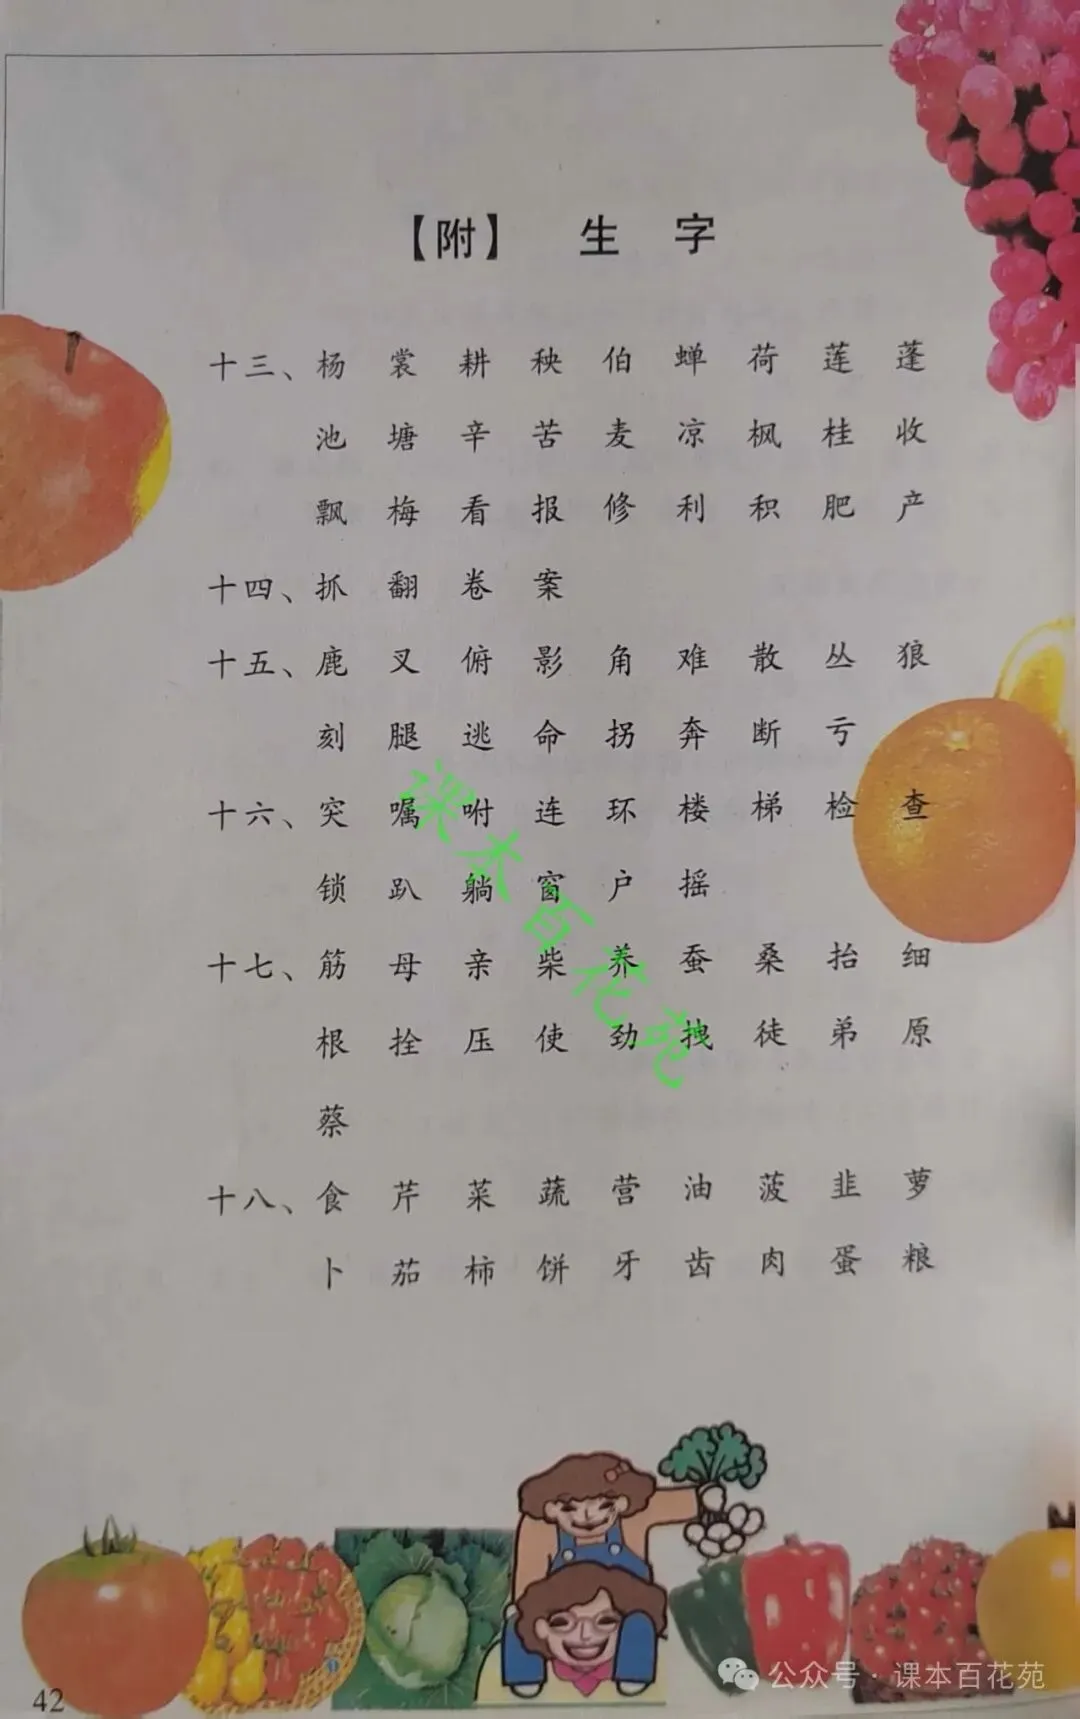 【附】 生 字
十三、杨 裳 耕 秧 伯 蝉 荷 莲 蓬
池 塘 辛 苦 麦 凉 枫 桂 收
飘 梅 看 报 修 利 积 肥 产
十四、抓 翻 卷 案
十五、鹿 叉 俯 影 角 难 散 丛 狼
刻 腿 逃 命 拐 奔 断 亏
十六、突 嘱 咐 连 环 楼 梯 检 查
锁 趴 躺 窗 户 摇
十七、筋 母 亲 柴 养 蚕 桑 抬 细
根 拴 压 使 劲 拽 徒 弟 原
蔡
十八、食 芹 菜 蔬 营 油 菠 韭 萝
卜 茄 柿 饼 牙 齿 肉 蛋 粮
课本百花苑
公众号·课本百花苑
42